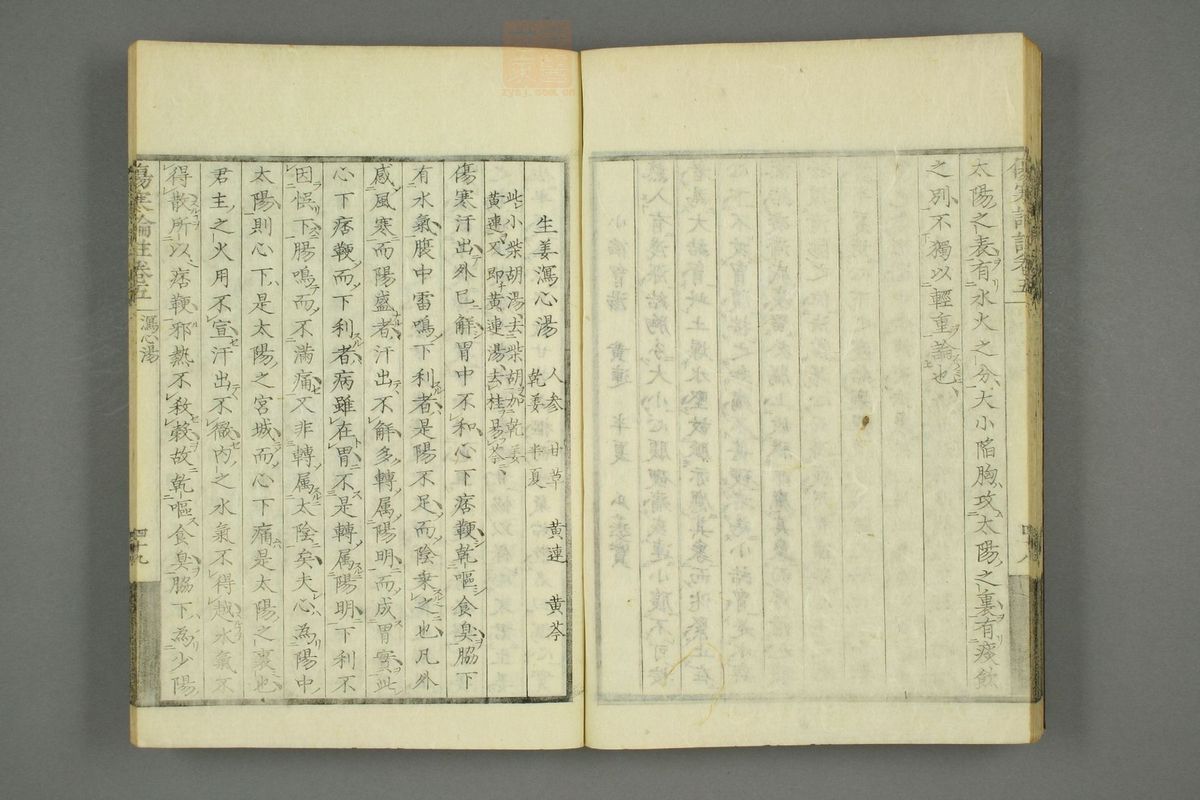 太陽之表有水火之分大小陷胸攻太陽之裏有痰飲
之別不獨以輕重論也
生姜瀉心湯
人参 甘草 黄連 黄芩
乾姜 半夏
此小柴胡湯去柴胡加乾姜
黄連又即黄連湯去桂易芩
傷寒汗出外已解胃中不和心下痞鞕乾嘔食臭脇下
有水氣腹中雷鳴下利者是陽不足而陰乗之也凡外
感風寒而陽盛者汗出不解多轉属陽明而成胃實此
心下痞鞕而下利者病雖在胃不是轉属陽明下利不
因悞下腸鳴而不滿痛又非轉属太陰矣夫心為陽中
太陽則心下是太陽之宮城而心下痛是太陽之裏也
君主之火用不宣汗出不徹内之水氣不得越水氣不
得散所以痞鞕邪熱不殺穀故乾嘔食臭脇下為少陽
傷寒論註卷五
瀉心湯
四十九